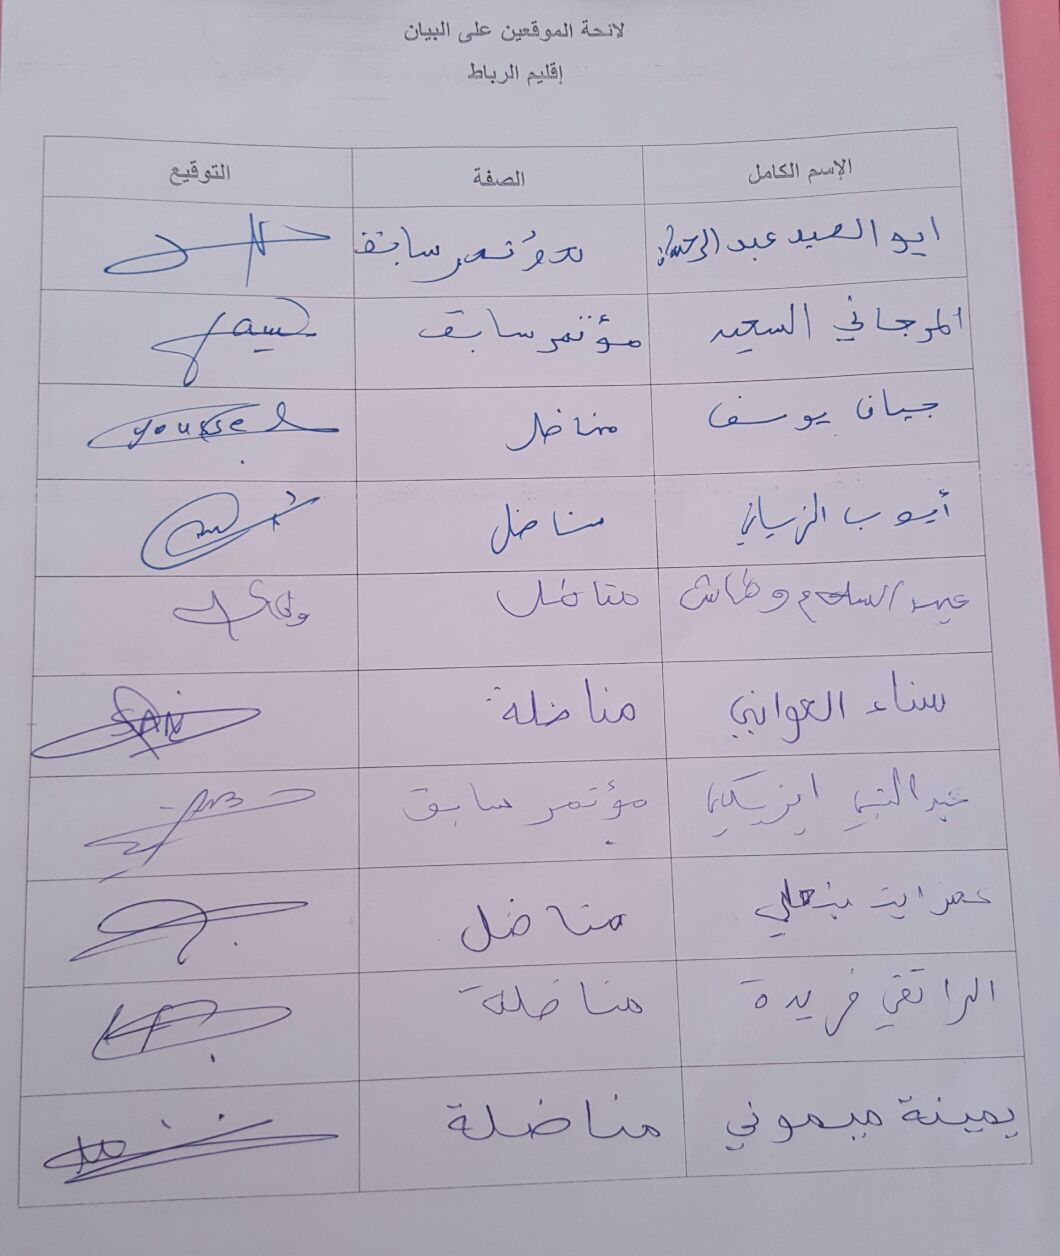 لائحة الموقعين على البيان
إقليم الرباط
الإسم الكامل الصفة التوقيع
ابو الصيد عبد الرحمان مؤتمر سابق
المرجاني السعيد مؤتمر سابق
جيان يوسف مناضل youssef
أيوب الزياني مناضل
عبد السلام وطاش مناضل
سناء العوابي مناضلة SAN
عبد النبي مؤتمر سابق
عمر ايت بنعلي مناضل
الراتقي فريدة مناضلة
يمينة ميموني مناضلة